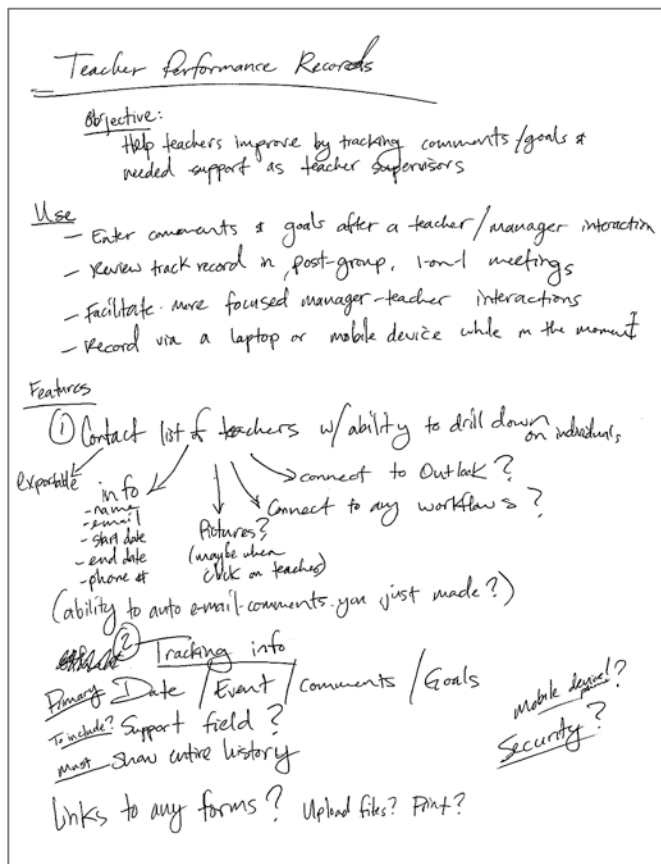 Teacher Performance Records
Objective:
Help teachers improve by tracking comments/goals &
needed support as teacher supervisors
Use
- Enter comments & goals after a teacher/manager interaction
- Review track record in post-group, 1-on-1 meetings
- Facilitate more focused manager-teacher interactions
- Record via a laptop or mobile device while in the moment
Features
① Contact list of teachers w/ability to drill down on individuals
exportable
info
- name
- email
- start date
- end date
- phone #
Pictures?
(maybe when
click on teacher)
connect to Outlook?
Connect to any workflows?
(ability to auto e-mail comments you just made?)
② Tracking info
Primary Date / Event / Comments / Goals
To include? Support field?
Must Show entire history
Mobile device!?
Security?
Links to any forms? Upload files? Print?